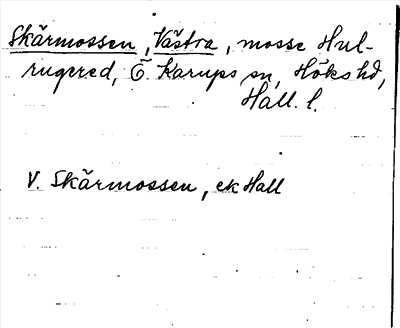 Skärmossen, Västra, mosse Hul-
rugered, Ö. Karups sn, Höks hd,
Hall. l.
V. Skärmossen, ek Hall